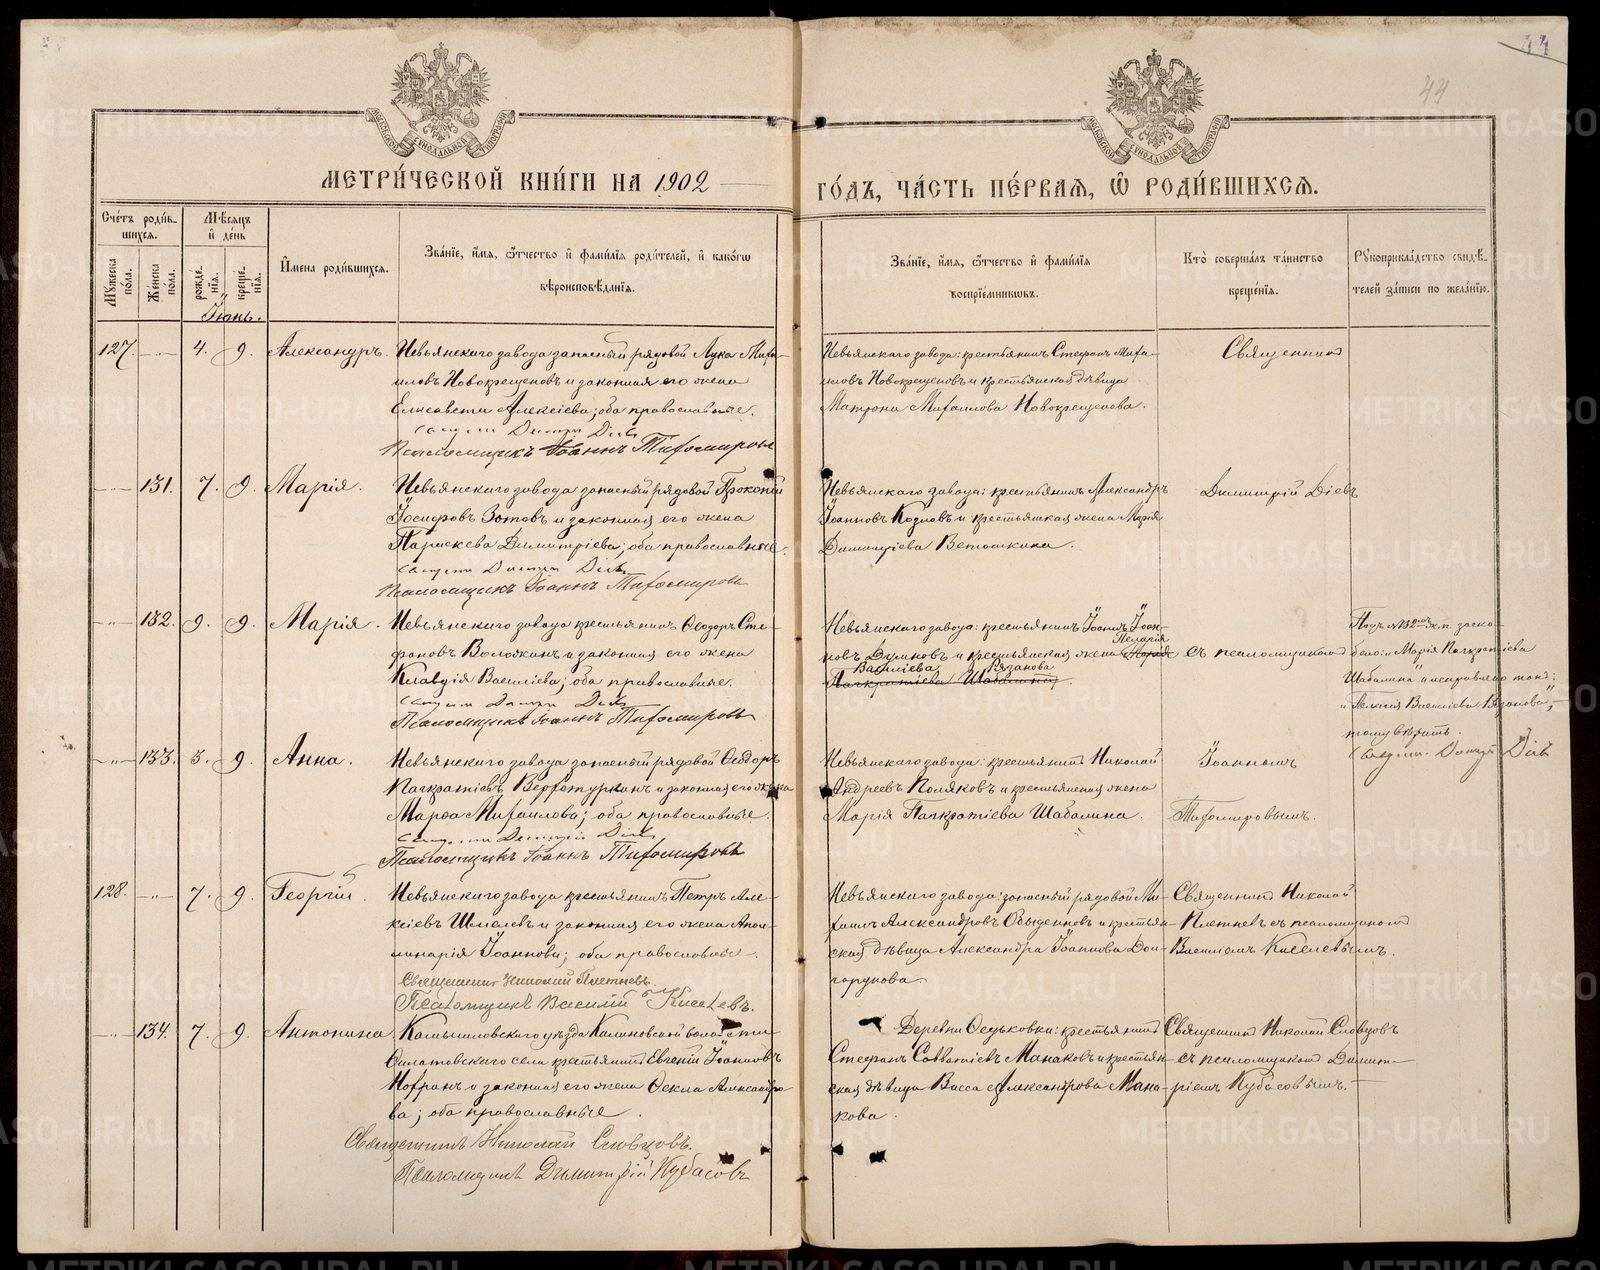 44
44
МОСКОВСКОЙ СѴНОДАЛЬНОЙ ТИПОГРАФІИ
МОСКОВСКОЙ СѴНОДАЛЬНОЙ ТИПОГРАФІИ
МЕТРИ́ЧЕСКОЙ КНИ́ГИ НА 1902
ГО́ДЪ, ЧА́СТЬ ПЕ́РВАЯ, Ѽ РОДИ́ВШИХСЯ.
Сче́тъ роди́в-
шихся.
Мѣсяцъ
и де́нь
Му́жеска по́ла.
Же́нска по́ла.
рожде́нія.
креще́нія.
Имена роди́вшихся.
Зва́ніе, и́мя, ѻ́тчество и фами́лія роди́телей, и како́гѡ
вѣроисповѣ́данія.
Зва́ніе, и́мя, ѻ́тчество и фами́лія
воспріе́мниковъ.
Кто̀ соверша́лъ та́инство
креще́нія.
Рукоприкла́дство свидѣ́-
телей за́писи по жела́нію.
Іюнь.
127. —"— 4. 9. Александръ.
Невьянскаго завода запасный рядовой Лука Михаи-
ловъ Новокрещеновъ и законная его жена
Елисавета Алексіева; оба православные.
Димитрій Діевъ
Псаломщикъ Іоаннъ Тихомировъ
Невьянскаго завода: крестьянинъ Стефанъ Михаи-
ловъ Новокрещеновъ и крестьянская дѣвица
Матрона Михаилова Новокрещенова.
Священникъ
—"— 131. 7. 9. Марія.
Невьянскаго завода запасный рядовой Прокопій
Іосифовъ Зотовъ и законная его жена
Параскева Димитріева; оба православные.
Димитрій Діевъ
Псаломщикъ Іоаннъ Тихомировъ
Невьянскаго завода: крестьянинъ Александръ
Іоанновъ Козловъ и крестьянская жена Марія
Димитріева Ветошкина.
Димитрій Діевъ
—"— 132. 9. 9. Марія.
Невьянскаго завода крестьянинъ Ѳеодоръ Сте-
фановъ Воложинъ и законная его жена
Клавдія Василіева; оба православные.
Димитрій Діевъ
Псаломщикъ Іоаннъ Тихомировъ
Невьянскаго завода: крестьянинъ Іоаннъ Іоан-
новъ Думновъ и крестьянская жена Марія Пелагія
Василіева Рязанова
Панкратіева Шабалина.
съ псаломщикомъ
Подъ №132 ж.п. заско-
блено: "Марія Панкратіева
Шабалина" и исправлено такъ:
Пелагія Василіева Рязанова",
тому вѣрить.
Димитрій Діевъ
—"— 133. 3. 9. Анна.
Невьянскаго завода запасный рядовой Ѳеодоръ
Панкратіевъ Верхотурцевъ и законная его жена
Марѳа Михаилова; оба православные.
Димитрій Діевъ
Псаломщикъ Іоаннъ Тихомировъ
Невьянскаго завода: крестьянинъ Николай
Андреевъ Поляковъ и крестьянская жена
Марія Панкратіева Шабалина.
Іоанномъ
Тихомировымъ.
128. —"— 7. 9. Георгій.
Невьянскаго завода крестьянинъ Петръ Але-
ксіевъ Шмелевъ и законная его жена Апол-
линарія Іоаннова; оба православные.
Священникъ Николай Плетневъ.
Псаломщикъ Василій Киселевъ.
Невьянскаго завода: запасный рядовой Ми-
хаилъ Александровъ Обыденновъ и крестьян-
ская дѣвица Александра Іоаннова Дол-
горукова.
Священникъ Николай
Плетневъ съ псаломщикомъ
Василіемъ Киселевымъ.
—"— 134. 7. 9. Антонина
Камышловскаго уѣзда Калиновской волости
крестьянинъ Евгеній Іоанновъ
и законная его жена Ѳекла Александро-
ва; оба православные.
Священникъ Николай Словцовъ.
Псаломщикъ Димитрій Кубасовъ
Деревни Ѳедьковки: крестьянинъ
Стефанъ Савватіевъ Манаковъ и крестьян-
ская дѣвица Васса Александрова Мана-
кова.
Священникъ Николай Словцовъ
съ псаломщикомъ Димит-
ріемъ Кубасовымъ.
METRIKI.GASO-URAL.RU